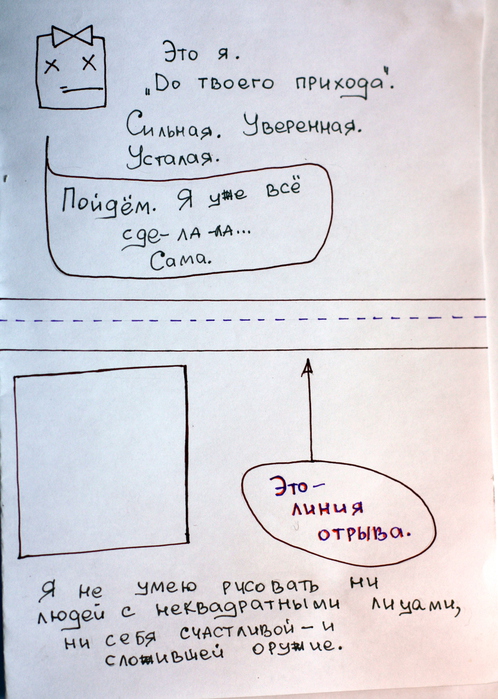 Это я.
„До твоего прихода".
Сильная. Уверенная.
Усталая.
Пойдём. Я уже всё
сде-ла-ла...
Сама.
Это-
линия
отрыва.
Я не умею рисовать ни
людей с неквадратными лицами,
ни себя счастливой – и
сложившей оружие.